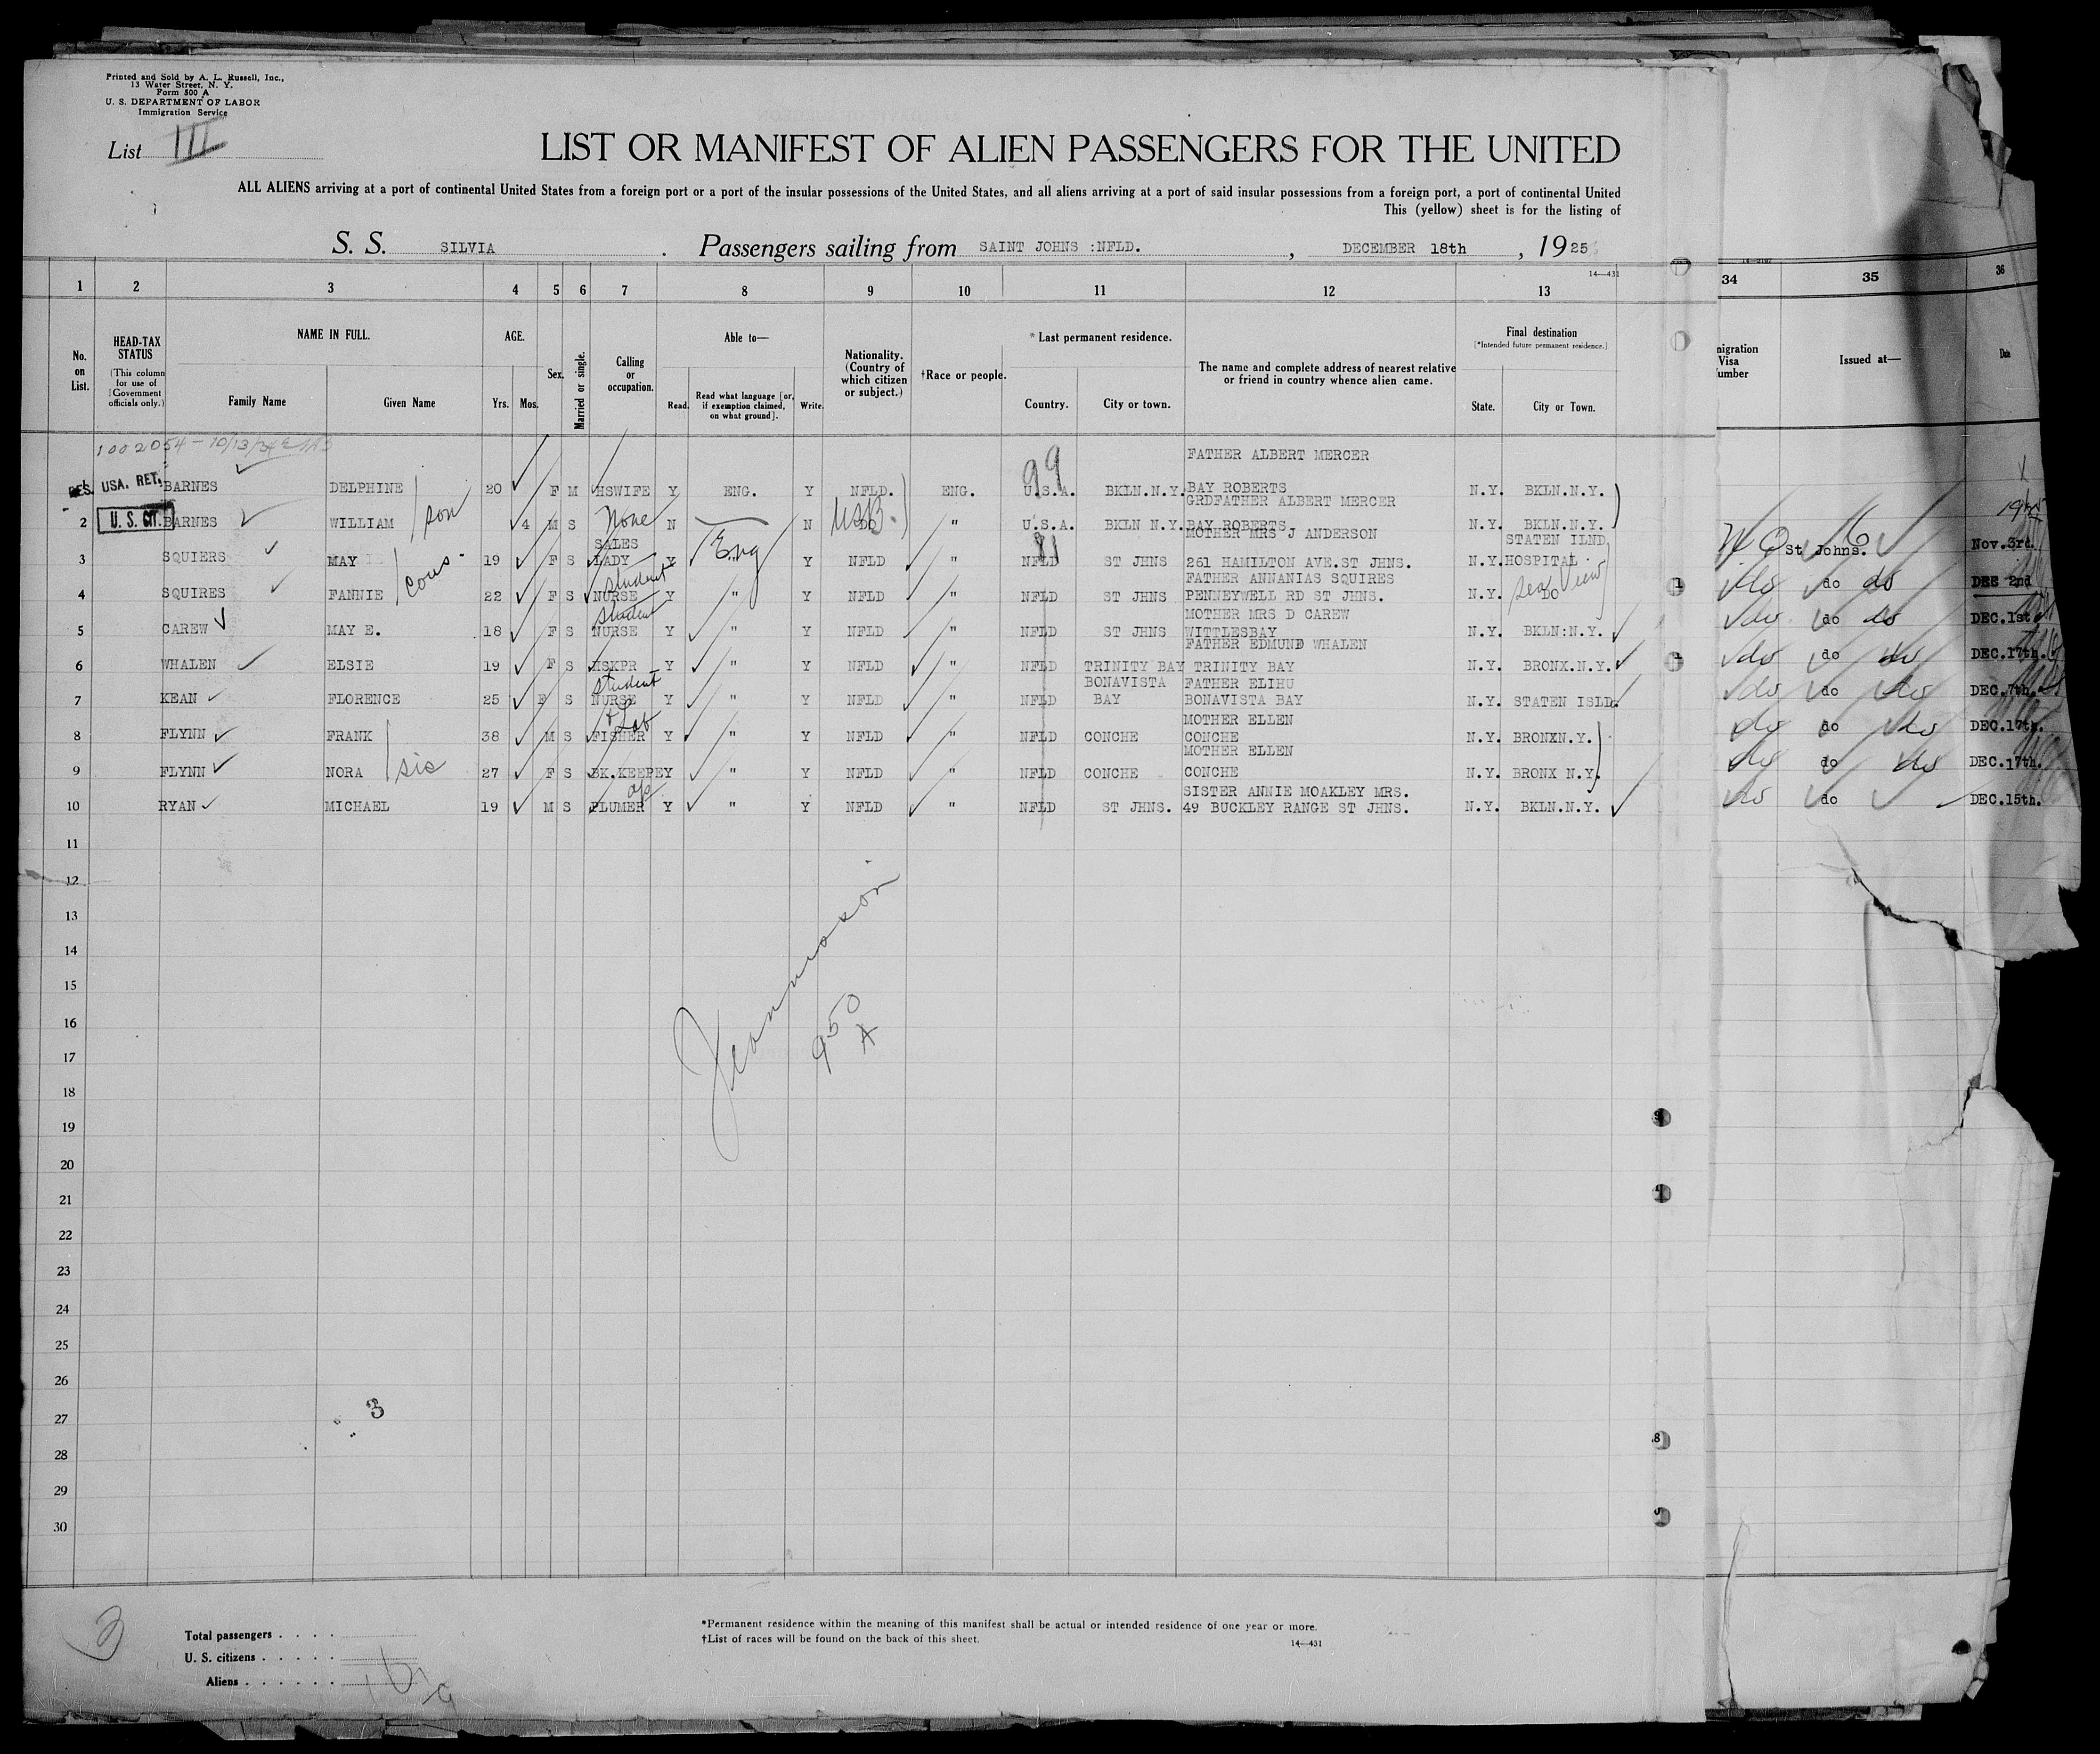 Printed and Sold by A. L. Russell, Inc.,
13 Water Street, N. Y.
Form 500 A
U. S. DEPARTMENT OF LABOR
Immigration Service
List III
LIST OR MANIFEST OF ALIEN PASSENGERS FOR THE UNITED
ALL ALIENS arriving at a port of continental United States from a foreign port or a port of the insular possessions of the United States, and all aliens arriving at a port of said insular possessions from a foreign port, a port of continental United
This (yellow) sheet is for the listing of
S. S. SILVIA. Passengers sailing from SAINT JOHNS :NFLD., DECEMBER 18th, 1925
14—431
1 2 3 4 5 6 7 8 9 10 11 12 13 34 35 36
No. on List.
HEAD-TAX STATUS (This column for use of Government officials only.)
NAME IN FULL.
Family Name Given Name
AGE.
Yrs. Mos.
Sex.
Married or single.
Calling or occupation.
Able to—
Read. Read what language [or, if exemption claimed, on what ground]. Write.
Nationality. (Country of which citizen or subject.)
†Race or people.
*Last permanent residence.
Country. City or town.
The name and complete address of nearest relative or friend in country whence alien came.
Final destination
[*Intended future permanent residence.]
State. City or Town.
migration Visa umber
Issued at—
Date
1002054 - 10/13/34
FATHER ALBERT MERCER
RES. USA. RET. BARNES DELPHINE 20 F M HSWIFE Y ENG. Y NFLD. ENG. 99 U.S.A. BKLN.N.Y. BAY ROBERTS N.Y. BKLN.N.Y.
GRDFATHER ALBERT MERCER
2 U.S. CIT. BARNES WILLIAM son 4 M S None N N DO USB. " U.S.A. BKLN N.Y. BAY ROBERTS N.Y. BKLN.N.Y.
SALES MOTHER MRS J ANDERSON STATEN ILND
3 SQUIERS MAY 19 F S LADY Y Eng Y NFLD " NFLD ST JHNS 261 HAMILTON AVE.ST JHNS. N.Y. HOSPITAL St Johns. Nov.3rd.
cous. student FATHER ANNANIAS SQUIRES Sea View
4 SQUIRES FANNIE 22 F S NURSE Y " Y NFLD " NFLD ST JHNS PENNEYWELL RD ST JHNS. N.Y. DO do do do DEC 2nd
student MOTHER MRS D CAREW
5 CAREW MAY E. 18 F S NURSE Y " Y NFLD " NFLD ST JHNS WITTLESBAY N.Y. BKLN:N.Y. do do do DEC.1st
FATHER EDMUND WHALEN
6 WHALEN ELSIE 19 F S HSKPR Y " Y NFLD " NFLD TRINITY BAY TRINITY BAY N.Y. BRONX.N.Y. do do do DEC.17th.
student BONAVISTA FATHER ELIHU
7 KEAN FLORENCE 25 F S NURSE Y " Y NFLD " NFLD BAY BONAVISTA BAY N.Y. STATEN ISLD. do do do DEC.7th.
Lab MOTHER ELLEN
8 FLYNN FRANK 38 M S FISHER Y " Y NFLD " NFLD CONCHE CONCHE N.Y. BRONXN.Y. do do do DEC.17th.
MOTHER ELLEN
9 FLYNN NORA sis 27 F S BK.KEEPE Y " Y NFLD " NFLD CONCHE CONCHE N.Y. BRONX N.Y. do do do DEC.17th.
SISTER ANNIE MOAKLEY MRS.
10 RYAN MICHAEL 19 M S PLUMER Y " Y NFLD " NFLD ST JHNS. 49 BUCKLEY RANGE ST JHNS. N.Y. BKLN.N.Y. do do DEC.15th.
11
12
13
14
15
16
950
A
17
18
19
20
21
22
23
24
25
26
27 3
28
29
30
3
Total passengers . . . .
U. S. citizens . . . . .
Aliens . . . . . .
*Permanent residence within the meaning of this manifest shall be actual or intended residence of one year or more.
†List of races will be found on the back of this sheet.
14—431